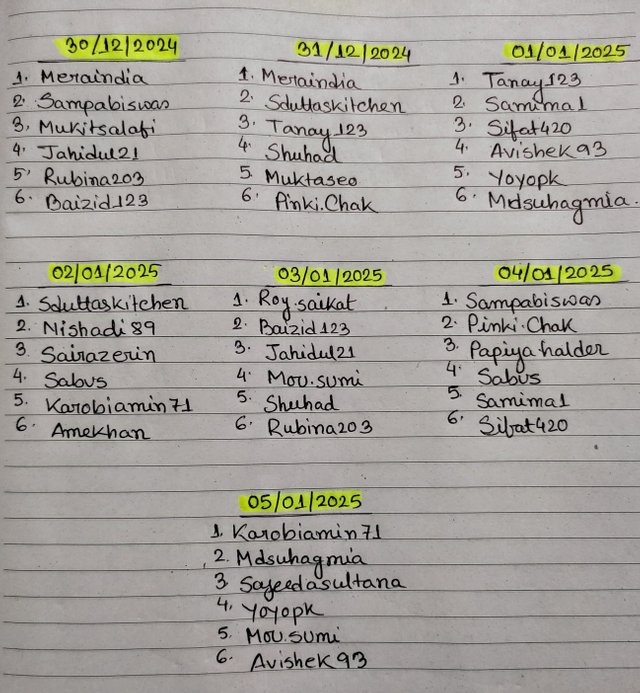 30/12/2024
1. Meraindia
2. Sampabiswas
3. Mukitsalafi
4. Jahidul21
5. Rubina203
6. Baizid123
31/12/2024
1. Meraindia
2. Sduttaskitchen
3. Tanay123
4. Shuhad
5. Muktaseo
6. Pinki.Chak
01/01/2025
1. Tanay123
2. Samima1
3. Sifat420
4. Avishek93
5. Yoyopk
6. Mdsuhagmia.
02/01/2025
1. Sduttaskitchen
2. Nishadi89
3. Sairazerin
4. Sabus
5. Karobiamin71
6. Amekhan
03/01/2025
1. Roy.saikat
2. Baizid123
3. Jahidul21
4. Mou.sumi
5. Shuhad
6. Rubina203
04/01/2025
1. Sampabiswas
2. Pinki.Chak
3. Papiya halder
4. Sabus
5. Samima1
6. Sifat420
05/01/2025
1. Karobiamin71
2. Mdsuhagmia
3. Sajeedasultana
4. Yoyopk
5. Mou.sumi
6. Avishek93